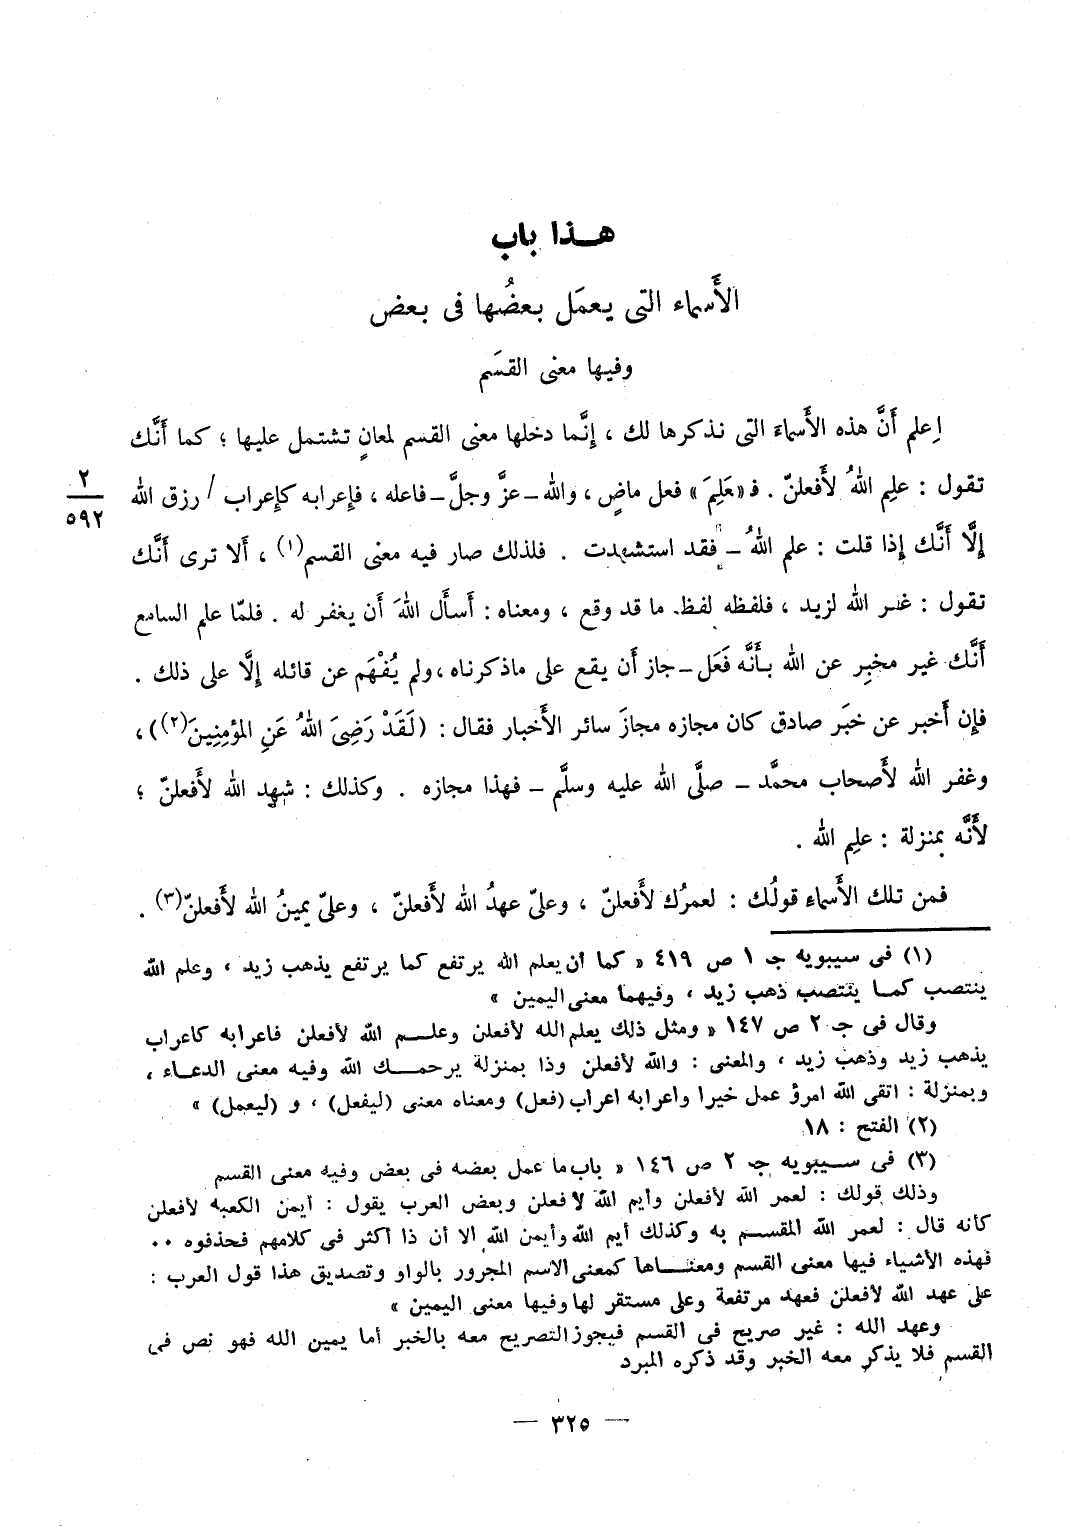 هـذا باب
الأَسماء التى يعمَل بعضُها فى بعض
وفيها معنى القسَم
اِعلم أَنَّ هذه الأَسماءَ التى نذكرها لك ، إِنَّما دخلها معنى القسم لمعانٍ تشتمل عليها ؛ كما أَنَّك
تقول : علِم اللهُ لأَفعلنّ . فـ «عَلِمَ» فعل ماضٍ ، والله – عزَّ وجلَّ – فاعله ، فإِعرابه كإِعراب / رزق الله
٢
٥٩٢
إِلَّا أَنَّك إِذا قلت : علم اللهُ – فقد استشهدت . فلذلك صار فيه معنى القسم(١) ، أَلا ترى أَنَّك
تقول : غفر الله لزيد ، فلفظه لفظ ما قد وقع ، ومعناه : أَسأَل اللهَ أَن يغفر له . فلمّا علم السامع
أَنَّك غير مخبِر عن الله بأَنَّه فَعَل – جاز أَن يقع على ماذكرناه ، ولم يُفْهَم عن قائله إِلَّا على ذلك .
فإِن أَخبر عن خبَر صادق كان مجازه مجازَ سائر الأَخبار فقال : (لَقَدْ رَضِىَ اللهُ عَنِ المؤمِنِينَ(٢)) ،
وغفر الله لأَصحاب محمَّد – صلَّى الله عليه وسلَّم – فهذا مجازه . وكذلك : شهِد الله لأَفعلنّ ؛
لأَنَّه بمنزلة : علِم الله .
فمن تلك الأَسماء قولُك : لعمرُك لأَفعلنّ ، وعلىّ عهدُ الله لأَفعلنّ ، وعلىّ يمينُ الله لأَفعلنّ(٣) .
(١) فى سيبويه جـ ١ ص ٤١٩ « كما أن يعلم الله يرتفع كما يرتفع يذهب زيد ، وعلم الله
ينتصب كمـا ينتصب ذهب زيد ، وفيهما معنى اليمين »
وقال فى جـ ٢ ص ١٤٧ « ومثل ذلك يعلم الله لأفعلن وعلـم الله لأفعلن فاعرابه كاعراب
يذهب زيد وذهب زيد ، والمعنى : والله لأفعلن وذا بمنزلة يرحمـك الله وفيه معنى الدعـاء ،
وبمنزلة : اتقى الله امرؤ عمل خيرا واعرابه اعراب (فعل) ومعناه معنى (ليفعل) ، و (ليعمل) »
(٢) الفتح : ١٨
(٣) فى سـيبويه جـ ٢ ص ١٤٦ « باب ما عمل بعضه فى بعض وفيه معنى القسم
وذلك قولك : لعمر الله لأفعلن وأيم الله لافعلن وبعض العرب يقول : أيمن الكعبة لأفعلن
كانه قال : لعمر الله المقسـم به وكذلك أيم الله وأيمن الله الا أن ذا أكثر فى كلامهم فحذفوه ٠٠
فهذه الأشياء فيها معنى القسم ومعنـاها كمعنى الاسم المجرور بالواو وتصديق هذا قول العرب :
على عهد الله لأفعلن فعهد مرتفعة وعلى مستقر لها وفيها معنى اليمين »
وعهد الله : غير صريح فى القسم فيجوز التصريح معه بالخبر أما يمين الله فهو نص فى
القسم فلا يذكر معه الخبر وقد ذكره المبرد
— ٣٢٥ —